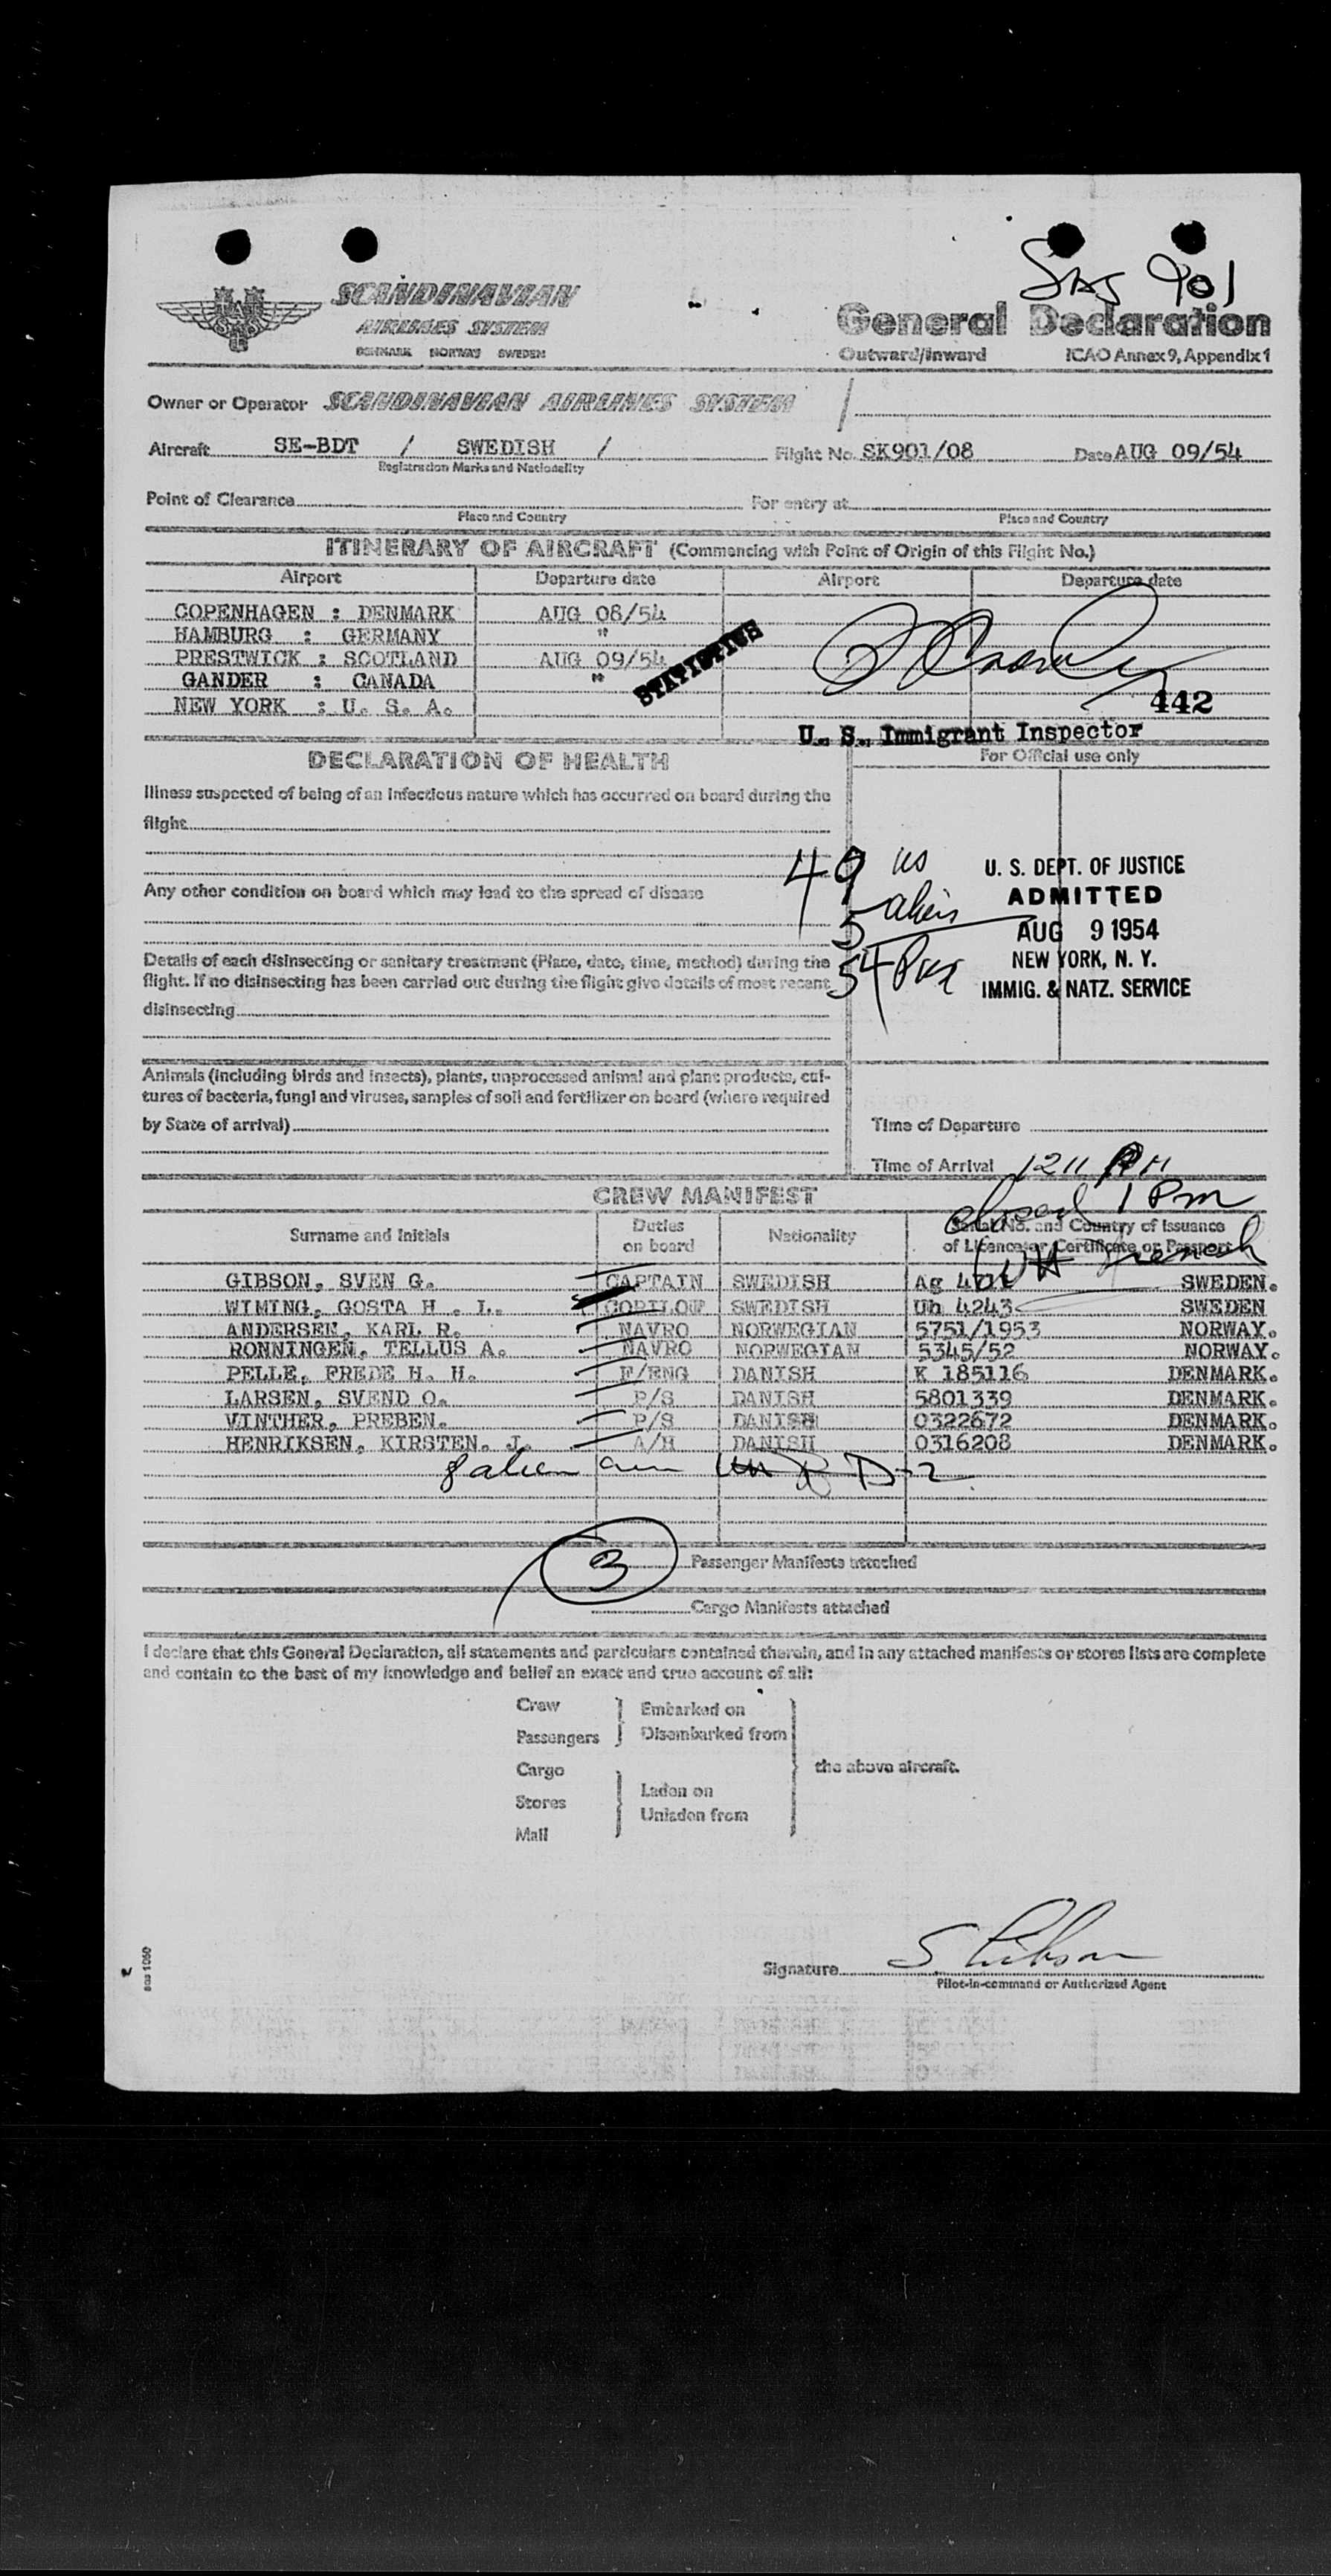 SAS 901
SCANDINAVIAN
AIRLINES SYSTEM
DENMARK NORWAY SWEDEN
General Declaration
Outward/Inward ICAO Annex 9, Appendix 1
Owner or Operator SCANDINAVIAN AIRLINES SYSTEM /
Aircraft SE-BDT / SWEDISH / Flight No. SK901/08 Date AUG 09/54
Registration Marks and Nationality
Point of Clearance For entry at
Place and Country Place and Country
ITINERARY OF AIRCRAFT (Commencing with Point of Origin of this Flight No.)
Airport Departure date Airport Departure date
COPENHAGEN : DENMARK AUG 08/54
HAMBURG : GERMANY "
PRESTWICK : SCOTLAND AUG 09/54
GANDER : CANADA "
NEW YORK : U. S. A.
STATISTICS
442
U. S. Immigrant Inspector
DECLARATION OF HEALTH
For Official use only
Illness suspected of being of an infectious nature which has occurred on board during the
flight
Any other condition on board which may lead to the spread of disease
Details of each disinsecting or sanitary treatment (Place, date, time, method) during the
flight. If no disinsecting has been carried out during the flight give details of most recent
disinsecting
49 us
5 aliens
54 Pax
U. S. DEPT. OF JUSTICE
ADMITTED
AUG 9 1954
NEW YORK, N. Y.
IMMIG. & NATZ. SERVICE
Animals (including birds and insects), plants, unprocessed animal and plant products, cul-
tures of bacteria, fungi and viruses, samples of soil and fertilizer on board (where required
by State of arrival)
Time of Departure
Time of Arrival 1211 PM
closed 1 Pm
CREW MANIFEST
Surname and Initials Duties on board Nationality Serial No. and Country of Issuance
of Licence or Certificate or Passport
GIBSON, SVEN G. CAPTAIN SWEDISH Ag SWEDEN.
WIMING, GOSTA H . L. COPILOT SWEDISH Uh 4243 SWEDEN
ANDERSEN, KARL R. NAVRO NORWEGIAN 5751/1953 NORWAY.
RONNINGEN, TELLUS A. NAVRO NORWEGIAN 5345/52 NORWAY.
PELLE, FREDE H. H. F/ENG DANISH K 185116 DENMARK.
LARSEN, SVEND O. P/S DANISH 5801339 DENMARK.
VINTHER, PREBEN. P/S DANISH 0322672 DENMARK.
HENRIKSEN, KIRSTEN. J. A/H DANISH 0316208 DENMARK.
8 alien D-2
3 Passenger Manifests attached
Cargo Manifests attached
I declare that this General Declaration, all statements and particulars contained therein, and in any attached manifests or stores lists are complete
and contain to the best of my knowledge and belief an exact and true account of all:
Crew Embarked on
Passengers Disembarked from
Cargo the above aircraft.
Stores Laden on
Mail Unladen from
Signature S Gibson
Pilot-in-command or Authorized Agent
sas 1050